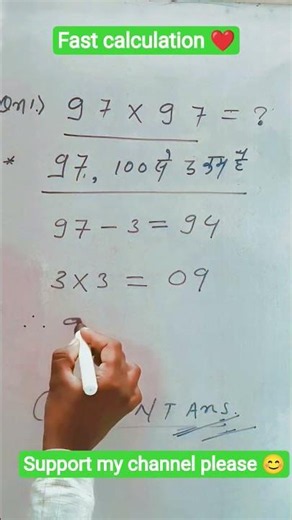 Fast calculation ❤️
Qn1.) 97 × 97 = ?
* 97, 100 से 3 कम है
97 - 3 = 94
3 × 3 = 09
∴ 9
N T Ans.
Support my channel please 😊